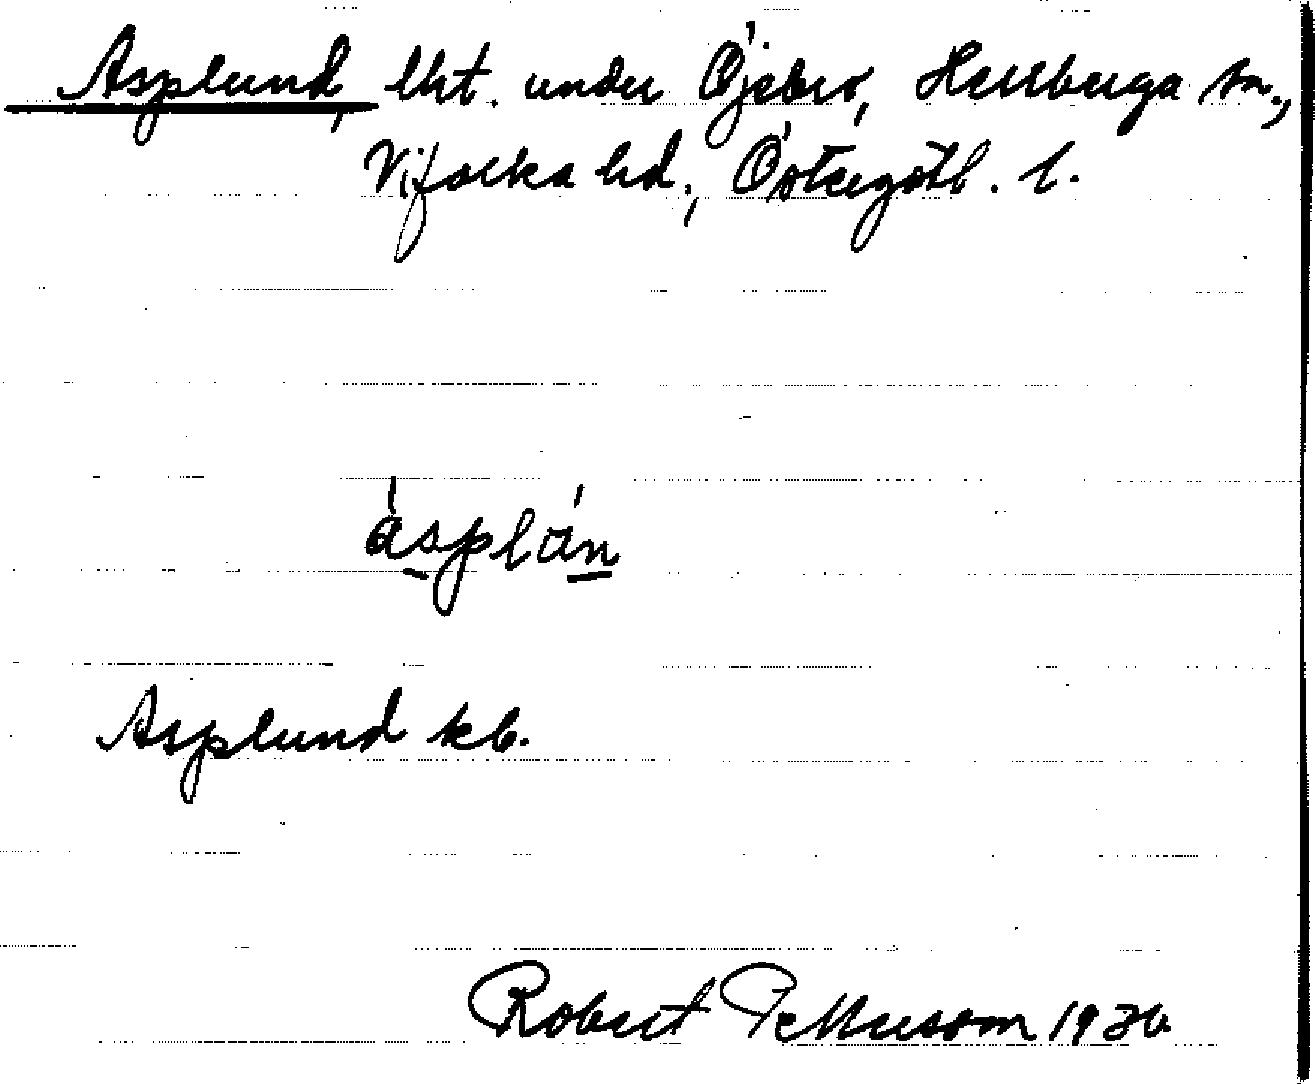 Asplund, lht. under Öjebro, Herrberga sn.,
Vifolka hd., Östergötl. l.
àsplán
Asplund kb.
Robert Pettersson 1930